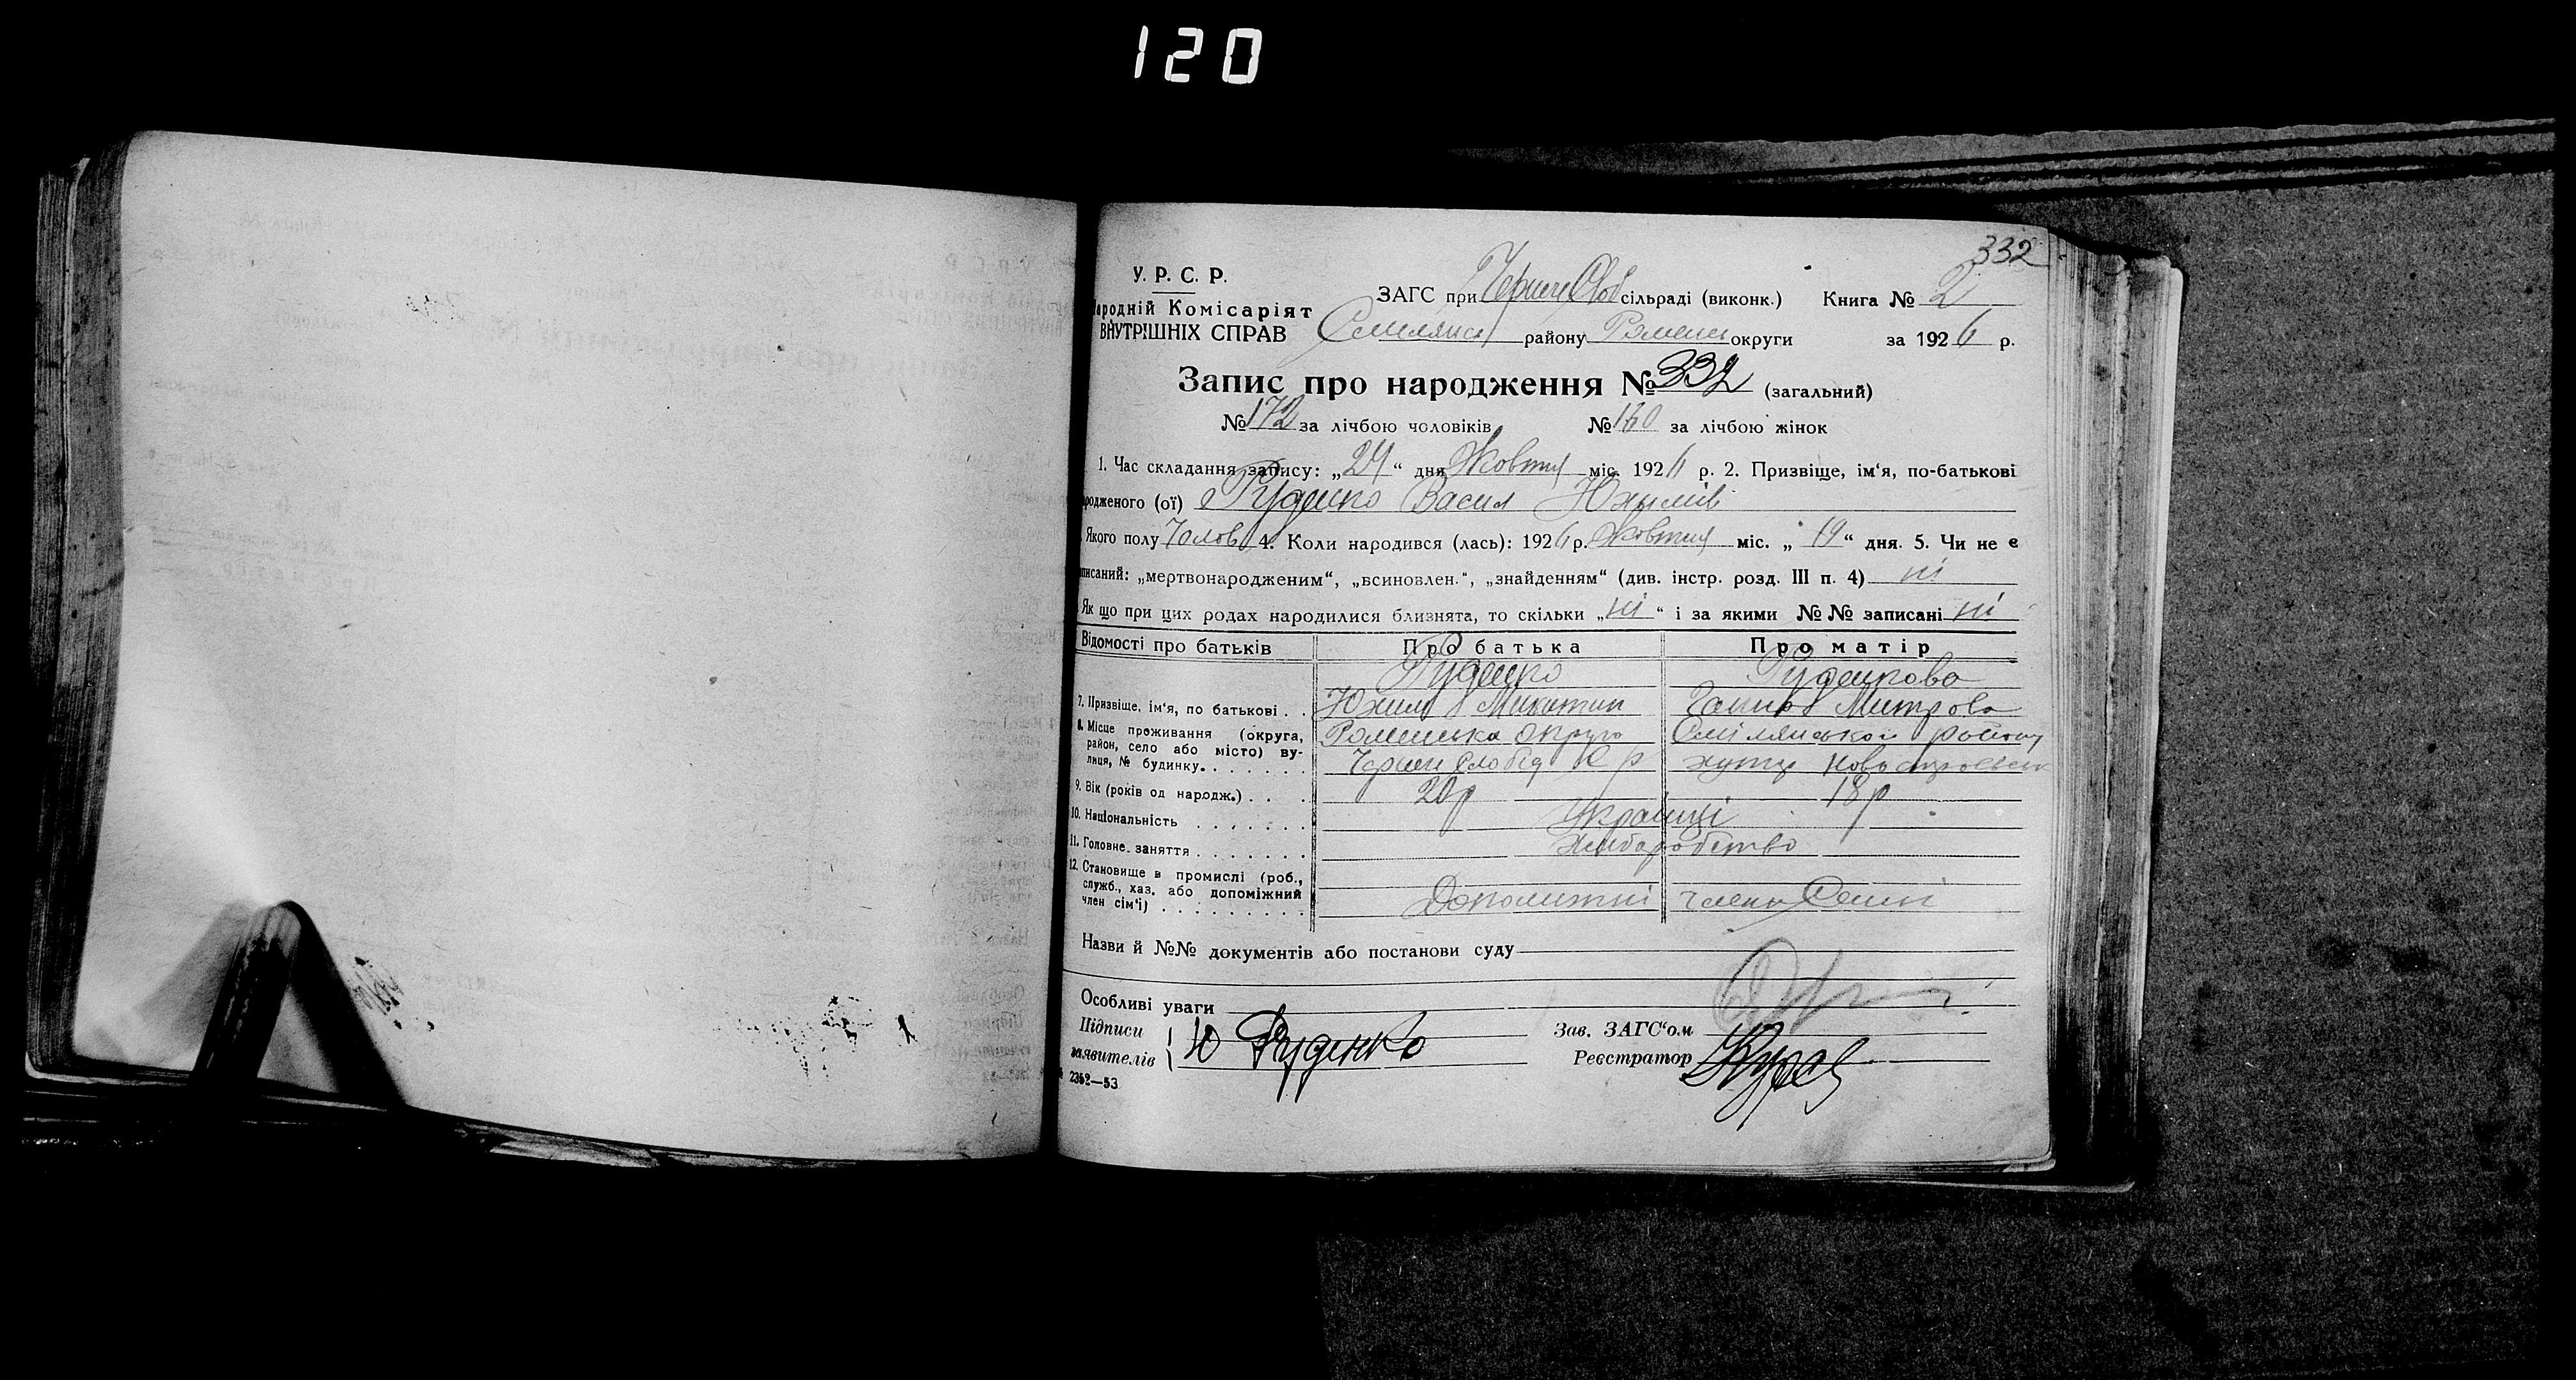 120
332
У. Р. С. Р.
Народній Комісаріят
ВНУТРІШНІХ СПРАВ
ЗАГС при Чернеч Слоб сільраді (виконк.) Книга № 2
Смілянськ району Роменс округи за 1926 р.
Запис про народження № 332 (загальний)
№ 172 за лічбою чоловіків № 160 за лічбою жінок
1. Час складання запису: „24“ дня Жовтня міс. 1926 р. 2. Призвіще, ім‘я, по-батькові
родженого (ої) Руденко Васил Юхимів
Якого полу Чолов 4. Коли народився (лась): 1926 р. Жовтня міс. „19“ дня. 5. Чи не є
писаний: „мертвонародженим“, „всиновлен.“, „знайденням“ (див. інстр. розд. III п. 4) ні
Як що при цих родах народилися близнята, то скільки „ні“ і за якими №№ записані ні
Відомості про батьків Про батька Про матір
Руденко Руденкова
7. Призвіще, ім‘я, по батькові . . Юхим Микитин Ганна Митрова
8. Місце проживання (округа, район, село або місто) вулиця, № будинку. Роменська округа Смілянської району
Черне Слобід С р хутір
9. Вік (років од народж.) . . . 20р 18р
10. Національність . . . . . . . Українці
11. Головне заняття . . . . . . . Хліборобство
12. Становище в промислі (роб.,
служб., хаз. або допоміжний
член сім‘і) . . . . . . . . . Допоміжні члени Семї
Назви й №№ документів або постанови суду
Особливі уваги
Підписи
заявителів Ю Руденко
Зав. ЗАГС‘ом
Реєстратор
2352—53